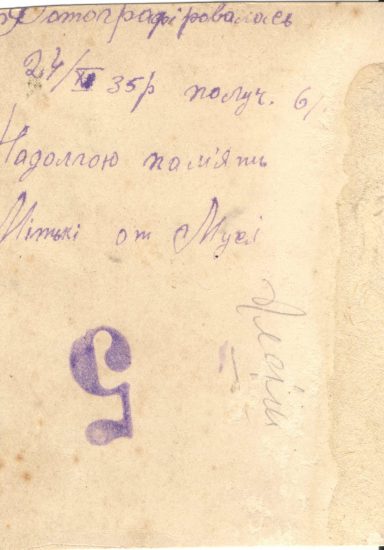 Фотографіровалась
24/XI 35р получ. 6/
Надолгою памʼять
Мітькі от Мусі
5